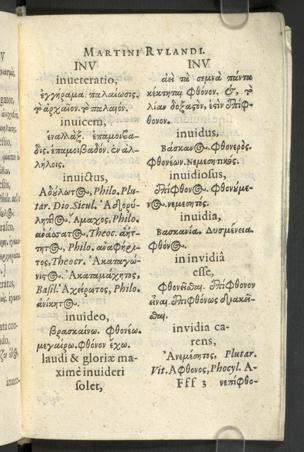 MARTINI RVLANDI.
INV
inueteratio,
ἐγγήραμα. παλαίωσις.
τὸ ἀρχαῖον. τὸ παλαιόν.
inuicem,
ἐναλλάξ. ἐπαμοιβα-
δὶς. ἐπαμοιβαδόν. ἐν ἀλ-
λήλοις.
inuictus,
Ἀδάμαστος, Philo. Plu-
tar. Dio. Sicul. Ἀδορύ-
Ἄμαχος, Philo.
Theoc. ἀήτ-
τητος, Philo.
τος, Theocr. Ἀκαταγώ-
νιστος. Ἀκαταμάχητος,
Basil. Ἀχείρωτος, Philo.
ἀνίκητος.
inuideo,
βασκαίνω. φθονέω.
μεγαίρω. φθόνον ἔχω.
laudi & gloriæ ma-
ximè inuideri
solet,
INV
ἀεὶ τὰ σεμνὰ πάντα
κέκτηται φθόνον. &, τὸ
λίαν ἔνδοξον, ἐςὶν ἐπίφθο-
νον.
inuidus,
Βάσκανος. Φθονερὸς.
Φθονέων. Νεμεσητικὸς.
inuidiosus,
Ἐπίφθονος. Φθονούμε-
νος. νεμεσητός.
inuidia,
Βασκανία. Δυσμένεια.
Φθόνος.
in invidiâ
esse,
Φθονεῖσθαι. Ἐπίφθονον
εἶναι. Ἐπιφθόνως διακεῖ-
σθαι.
invidia ca-
rens,
Ἀνεμέσητος, Plutar.
Vit. Ἄφθονος, Phocyl. Ἀ-
Fff 3 νεπίφθο-